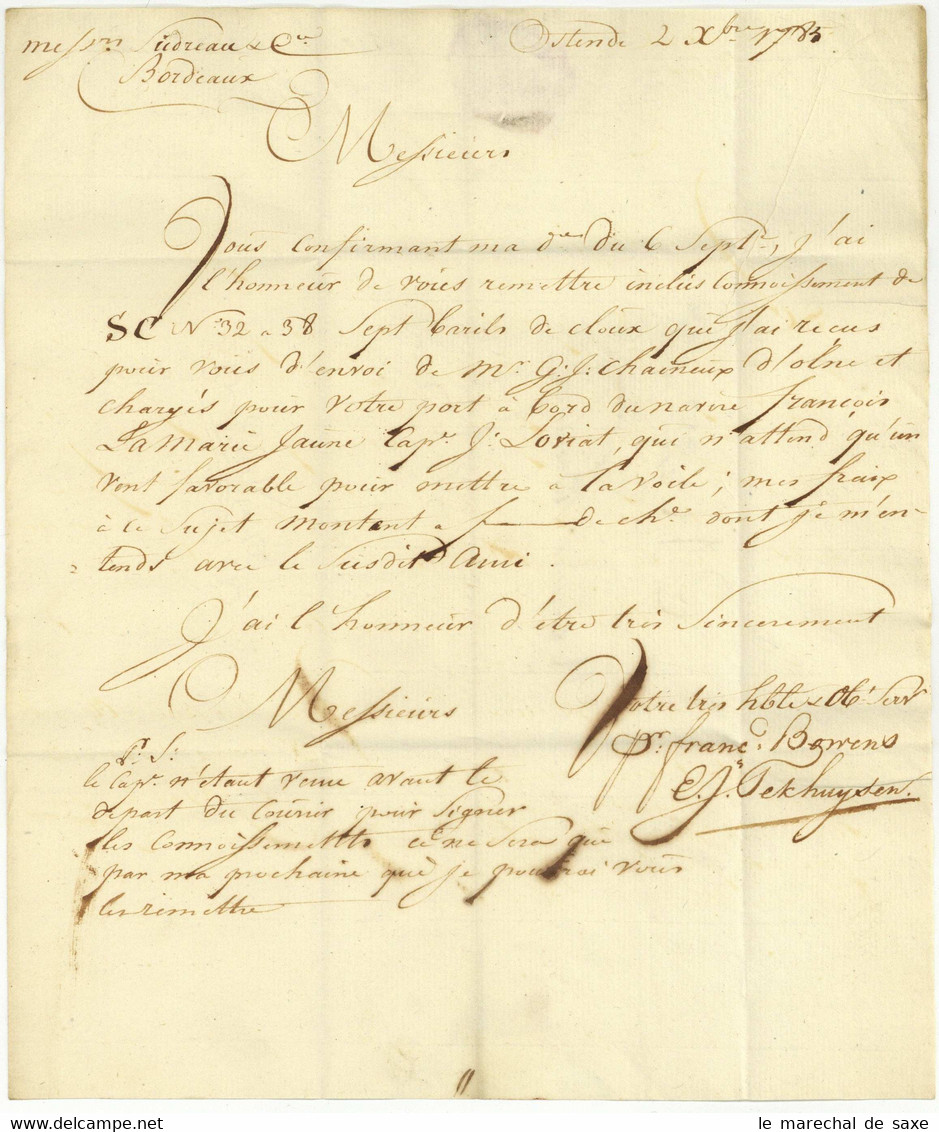 Messrs Sudreau & Cie Ostende 2 Xbre 1785
Bordeaux
Messieurs
Vous confirmant ma de du 6 Septe, J'ai
l'honneur de vous remettre inclus Connoissement de
SC No 32 a 38 Sept barils de cloux que J'ai recus
pour vous d'envoi de Mr. G: J: Chaineux d'Olne et
chargés pour votre port à bord du navire françois
La Marie Jaune Cape. J: Loriat, qui n'attend qu'un
vent favorable pour mettre à la voile; mes fraix
à ce Sujet montent a f——— de che. dont je m'en-
= tends avec le Susdit Ami.
J'ai l'honneur d'être très Sincerement
Messieurs
Votre très hble & Obt Serv
Pr. franco: Bowens
E. J. Tekhuysen.
P: S:
le Cape. n'étant venu avant le
depart du Courier pour Signer
les Connoissements ce ne Sera que
par ma prochaine que je pourrai vous
les remettre
le marechal de saxe